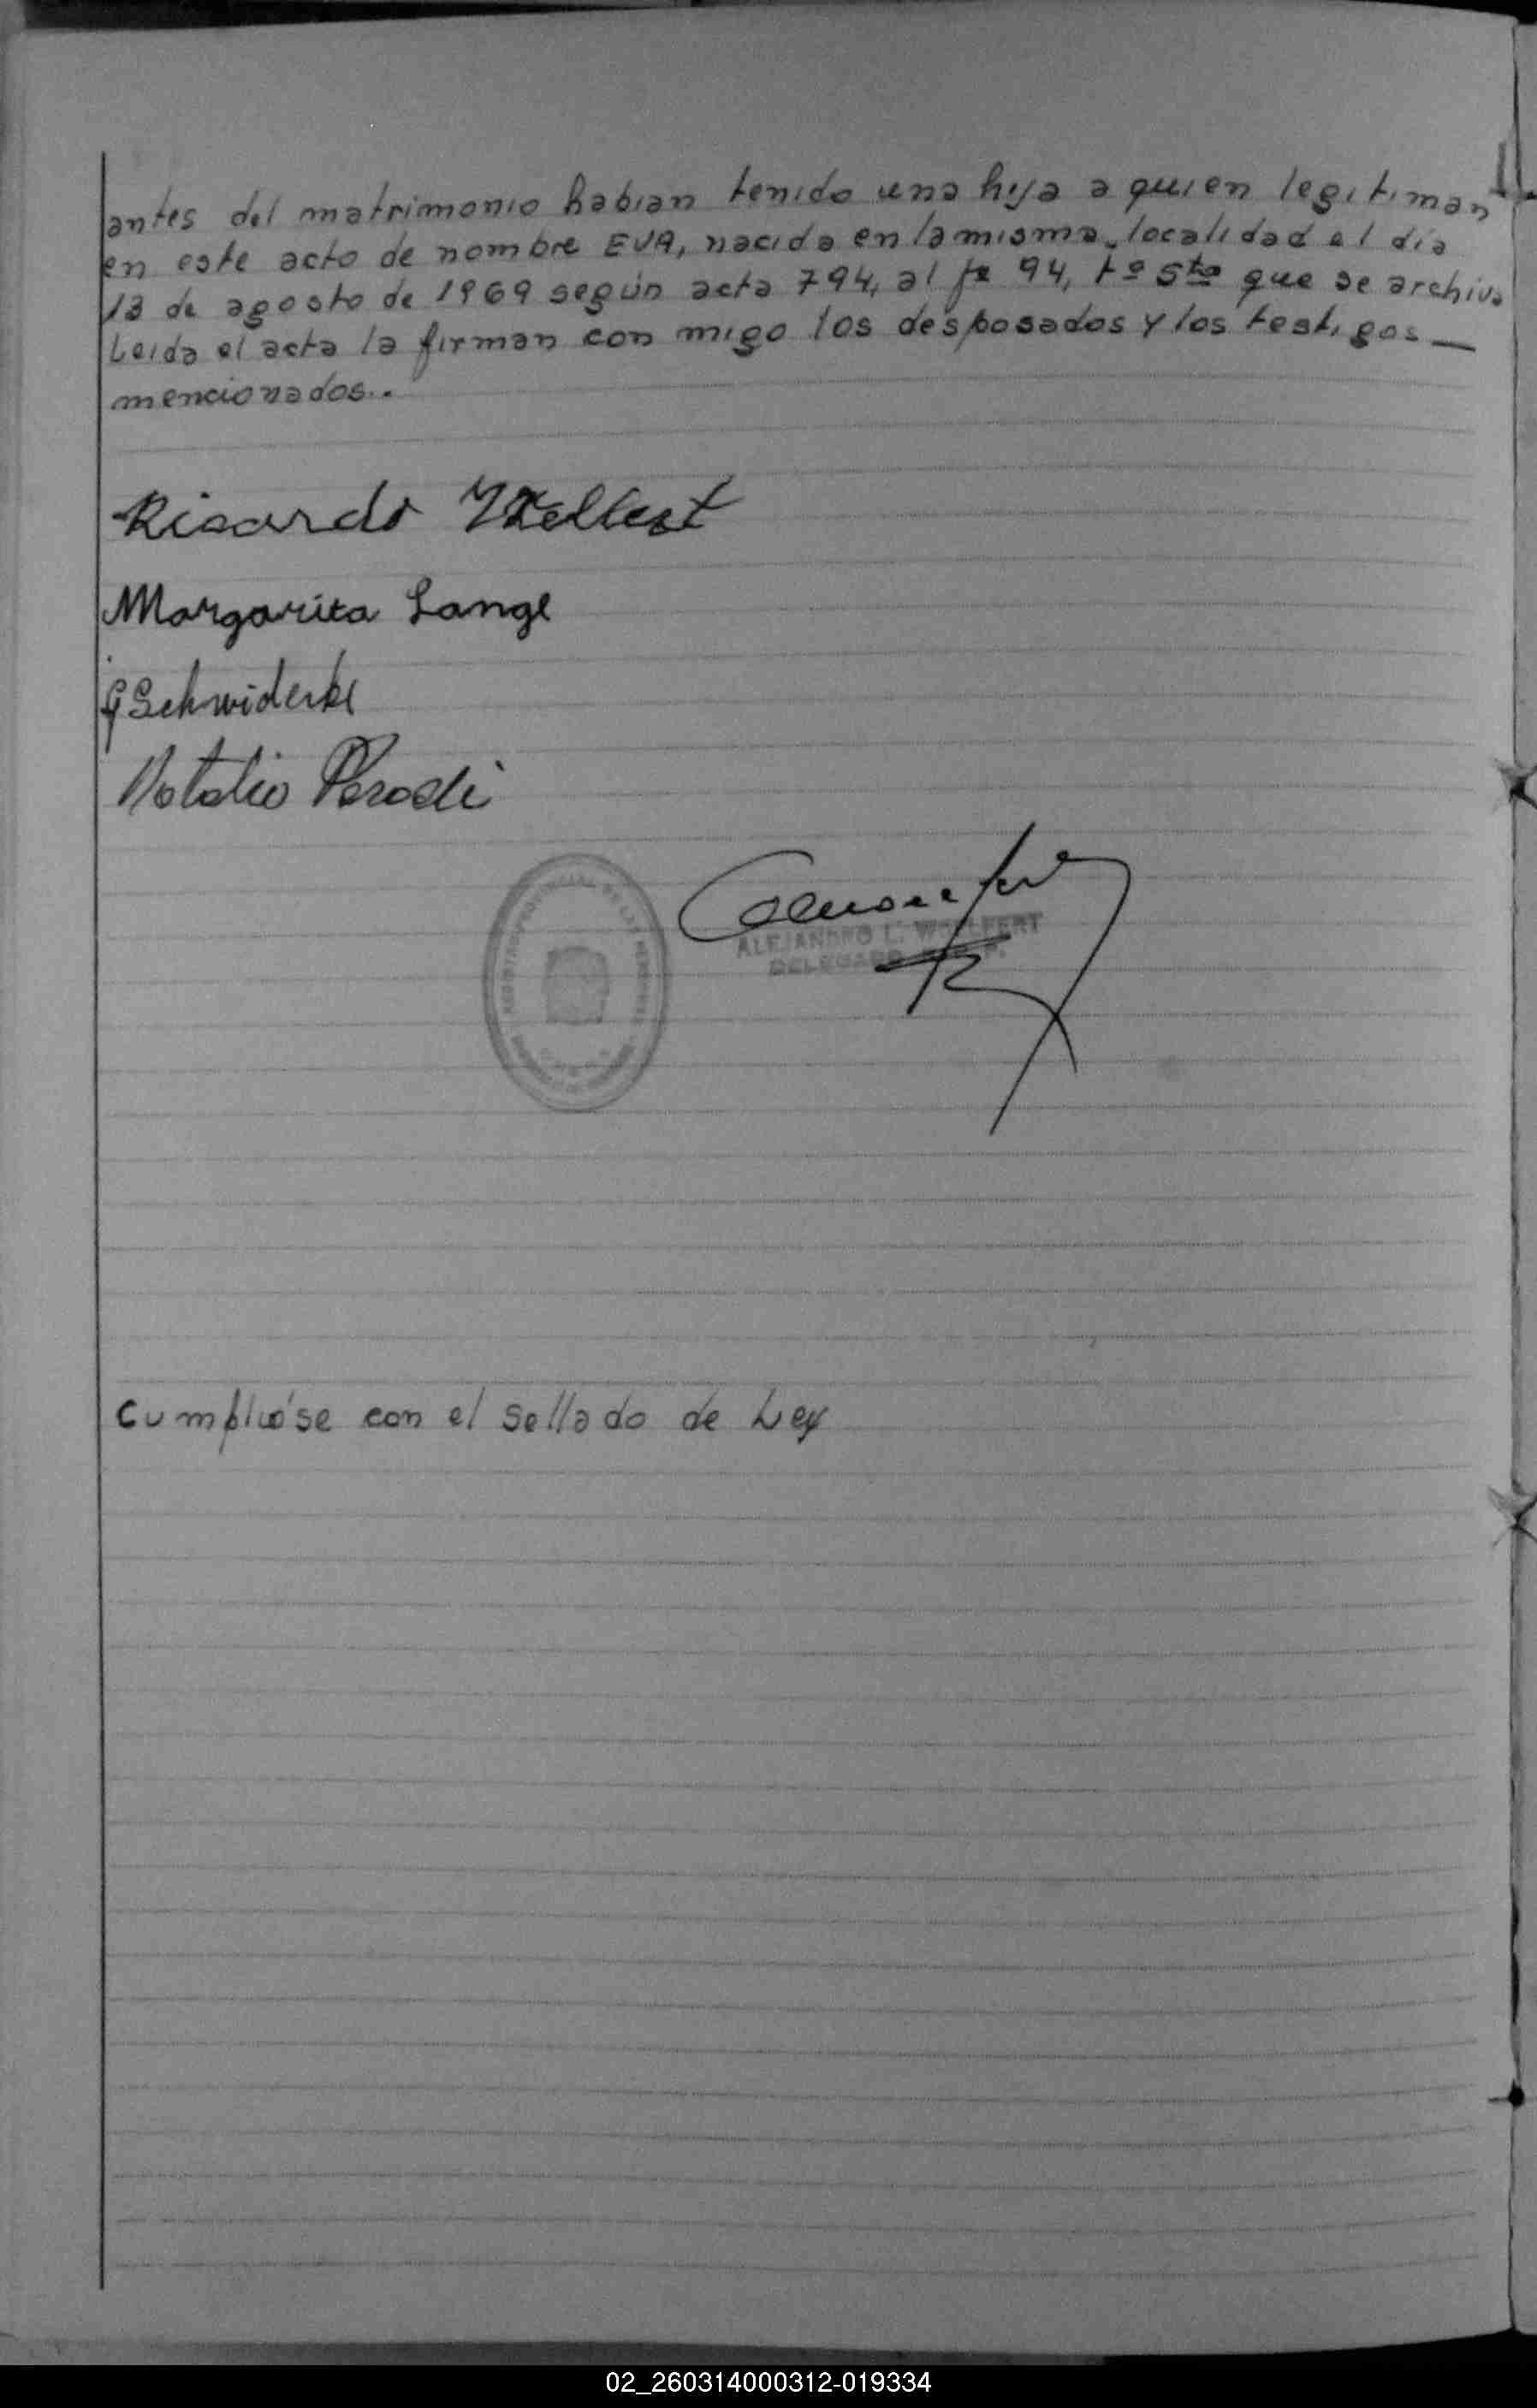 antes del matrimonio habian tenido una hija a quien legitiman
en este acto de nombre EVA, nacida en la misma localidad el día
13 de agosto de 1969 según acta 794, al fº 94, tº 5to que se archiva
Leida el acta la firman con migo los desposados y los testigos —
mencionados..
Ricardo
Margarita Lange
G Schwiderke
Natalio Parodi
ALEJANDRO L. WOLLFERT
DELEGADO
Cumplióse con el sellado de Ley
02_260314000312-019334